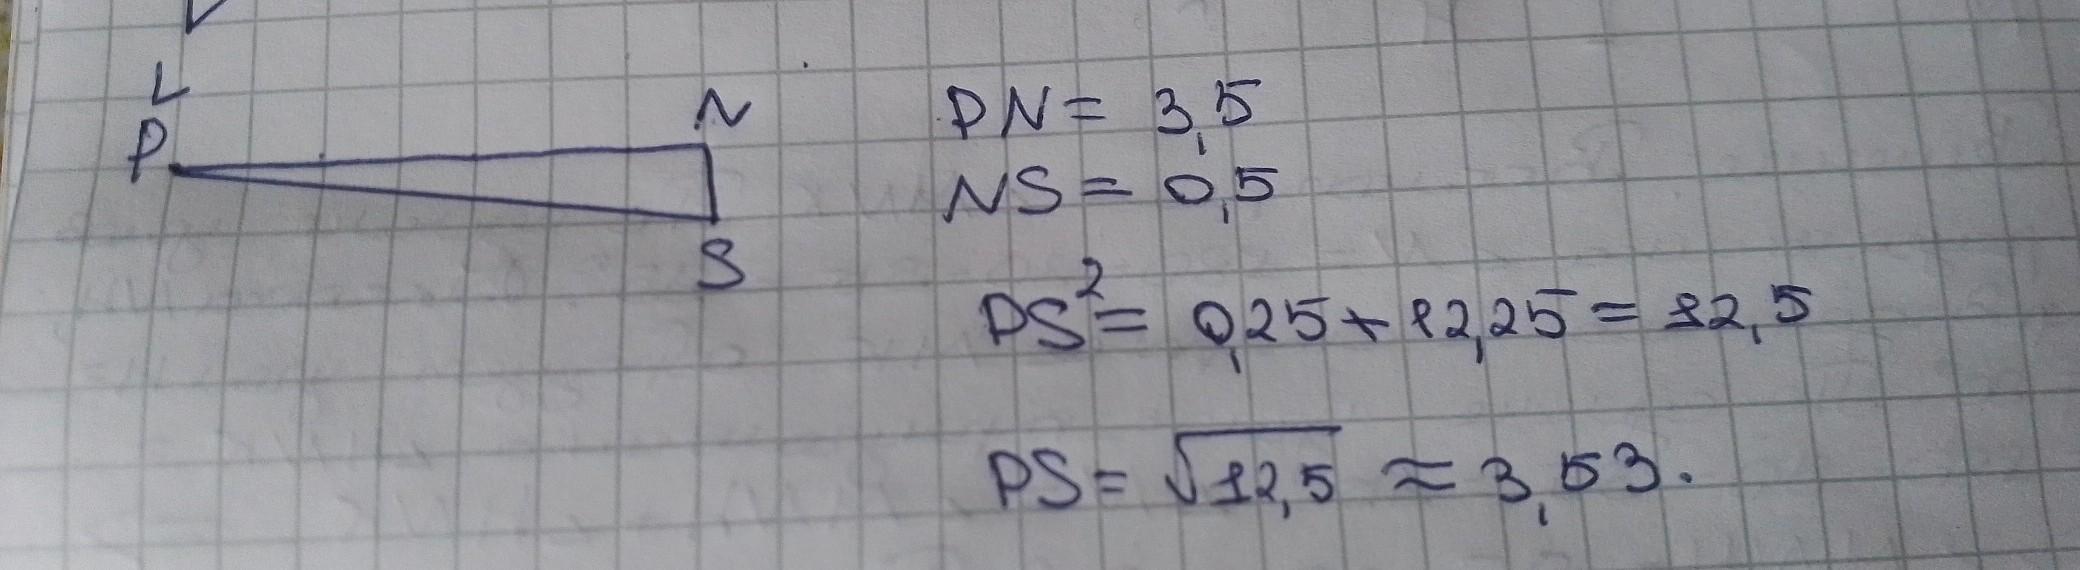 L
P
N
S
PN = 3,5
NS = 0,5
PS² = 0,25 + 12,25 = 12,5
PS = √12,5 ≈ 3,53.